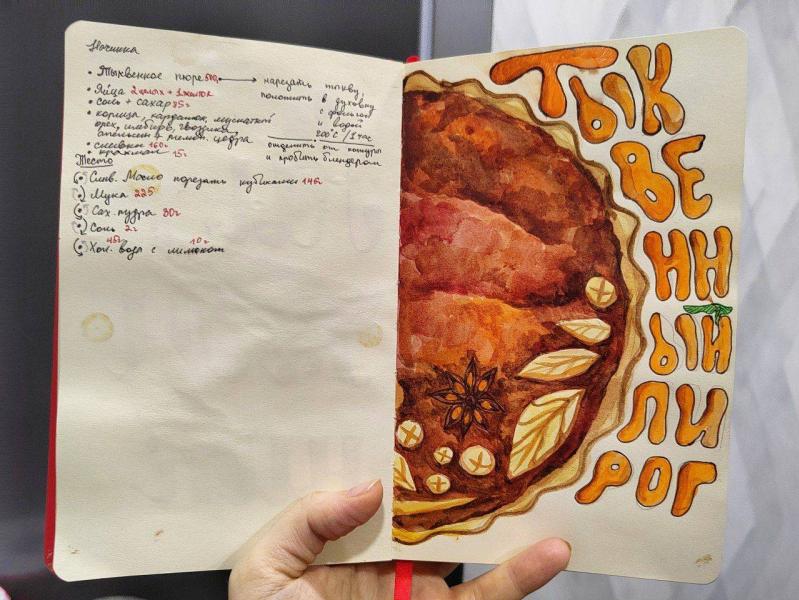 Начинка
• Тыквенное пюре 500г → нарезать тыкву,
положить в духовку
с фольгой
и водой
200°C / 1 час
отделить от кожуры
и пробить блендером
• Яйца 2 целых + 1 желток
• Соль + сахар 85г
• корица, кардамон, мускатный
орех, имбирь, гвоздика,
апельсин и лимон. цедра
• сливки 160г
• крахмал 15г
Тесто
Слив. Масло порезать кубиками 146г
Мука 225
Сах. пудра 30г
Соль 2г
Хол. вода с лимоном 10г
ТЫК
ВЕ
НН
ЫЙ
ПИ
РОГ